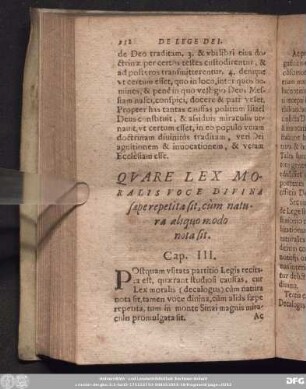 152 DE LEGE DEI.
de Deo traditam. 3. & vt libri eius do-
ctrinæ per certos testes custodirentur, &
ad posteros transmitterentur. 4. denique
vt certum esset, quo in loco, inter quos ho-
mines, & penè in quo vestigio Deus Mes-
siam nasci, conspici, docere & pati vellet.
Propter has tantas causas politiam illam
Deus constituit, & assiduis miraculis or-
nauit, vt certum esset, in eo populo veram
doctrinam diuinitus traditam, veri Dei
agnitionem & inuocationem, & veram
Ecclesiam esse.
QVARE LEX MO-
RALIS VOCE DIVINA
sæpe repetita sit, cùm natu-
ra aliquo modo
nota sit.
Cap. III.
POstquam vsitata partitio Legis recita-
ta est, quærant studiosi causas, cur
Lex moralis (decalogus) cùm natura
nota sit, tamen voce diuina, cùm aliàs sæpe
repetita, tum in monte Sinai magnis mira-
culis promulgata sit.
Ac